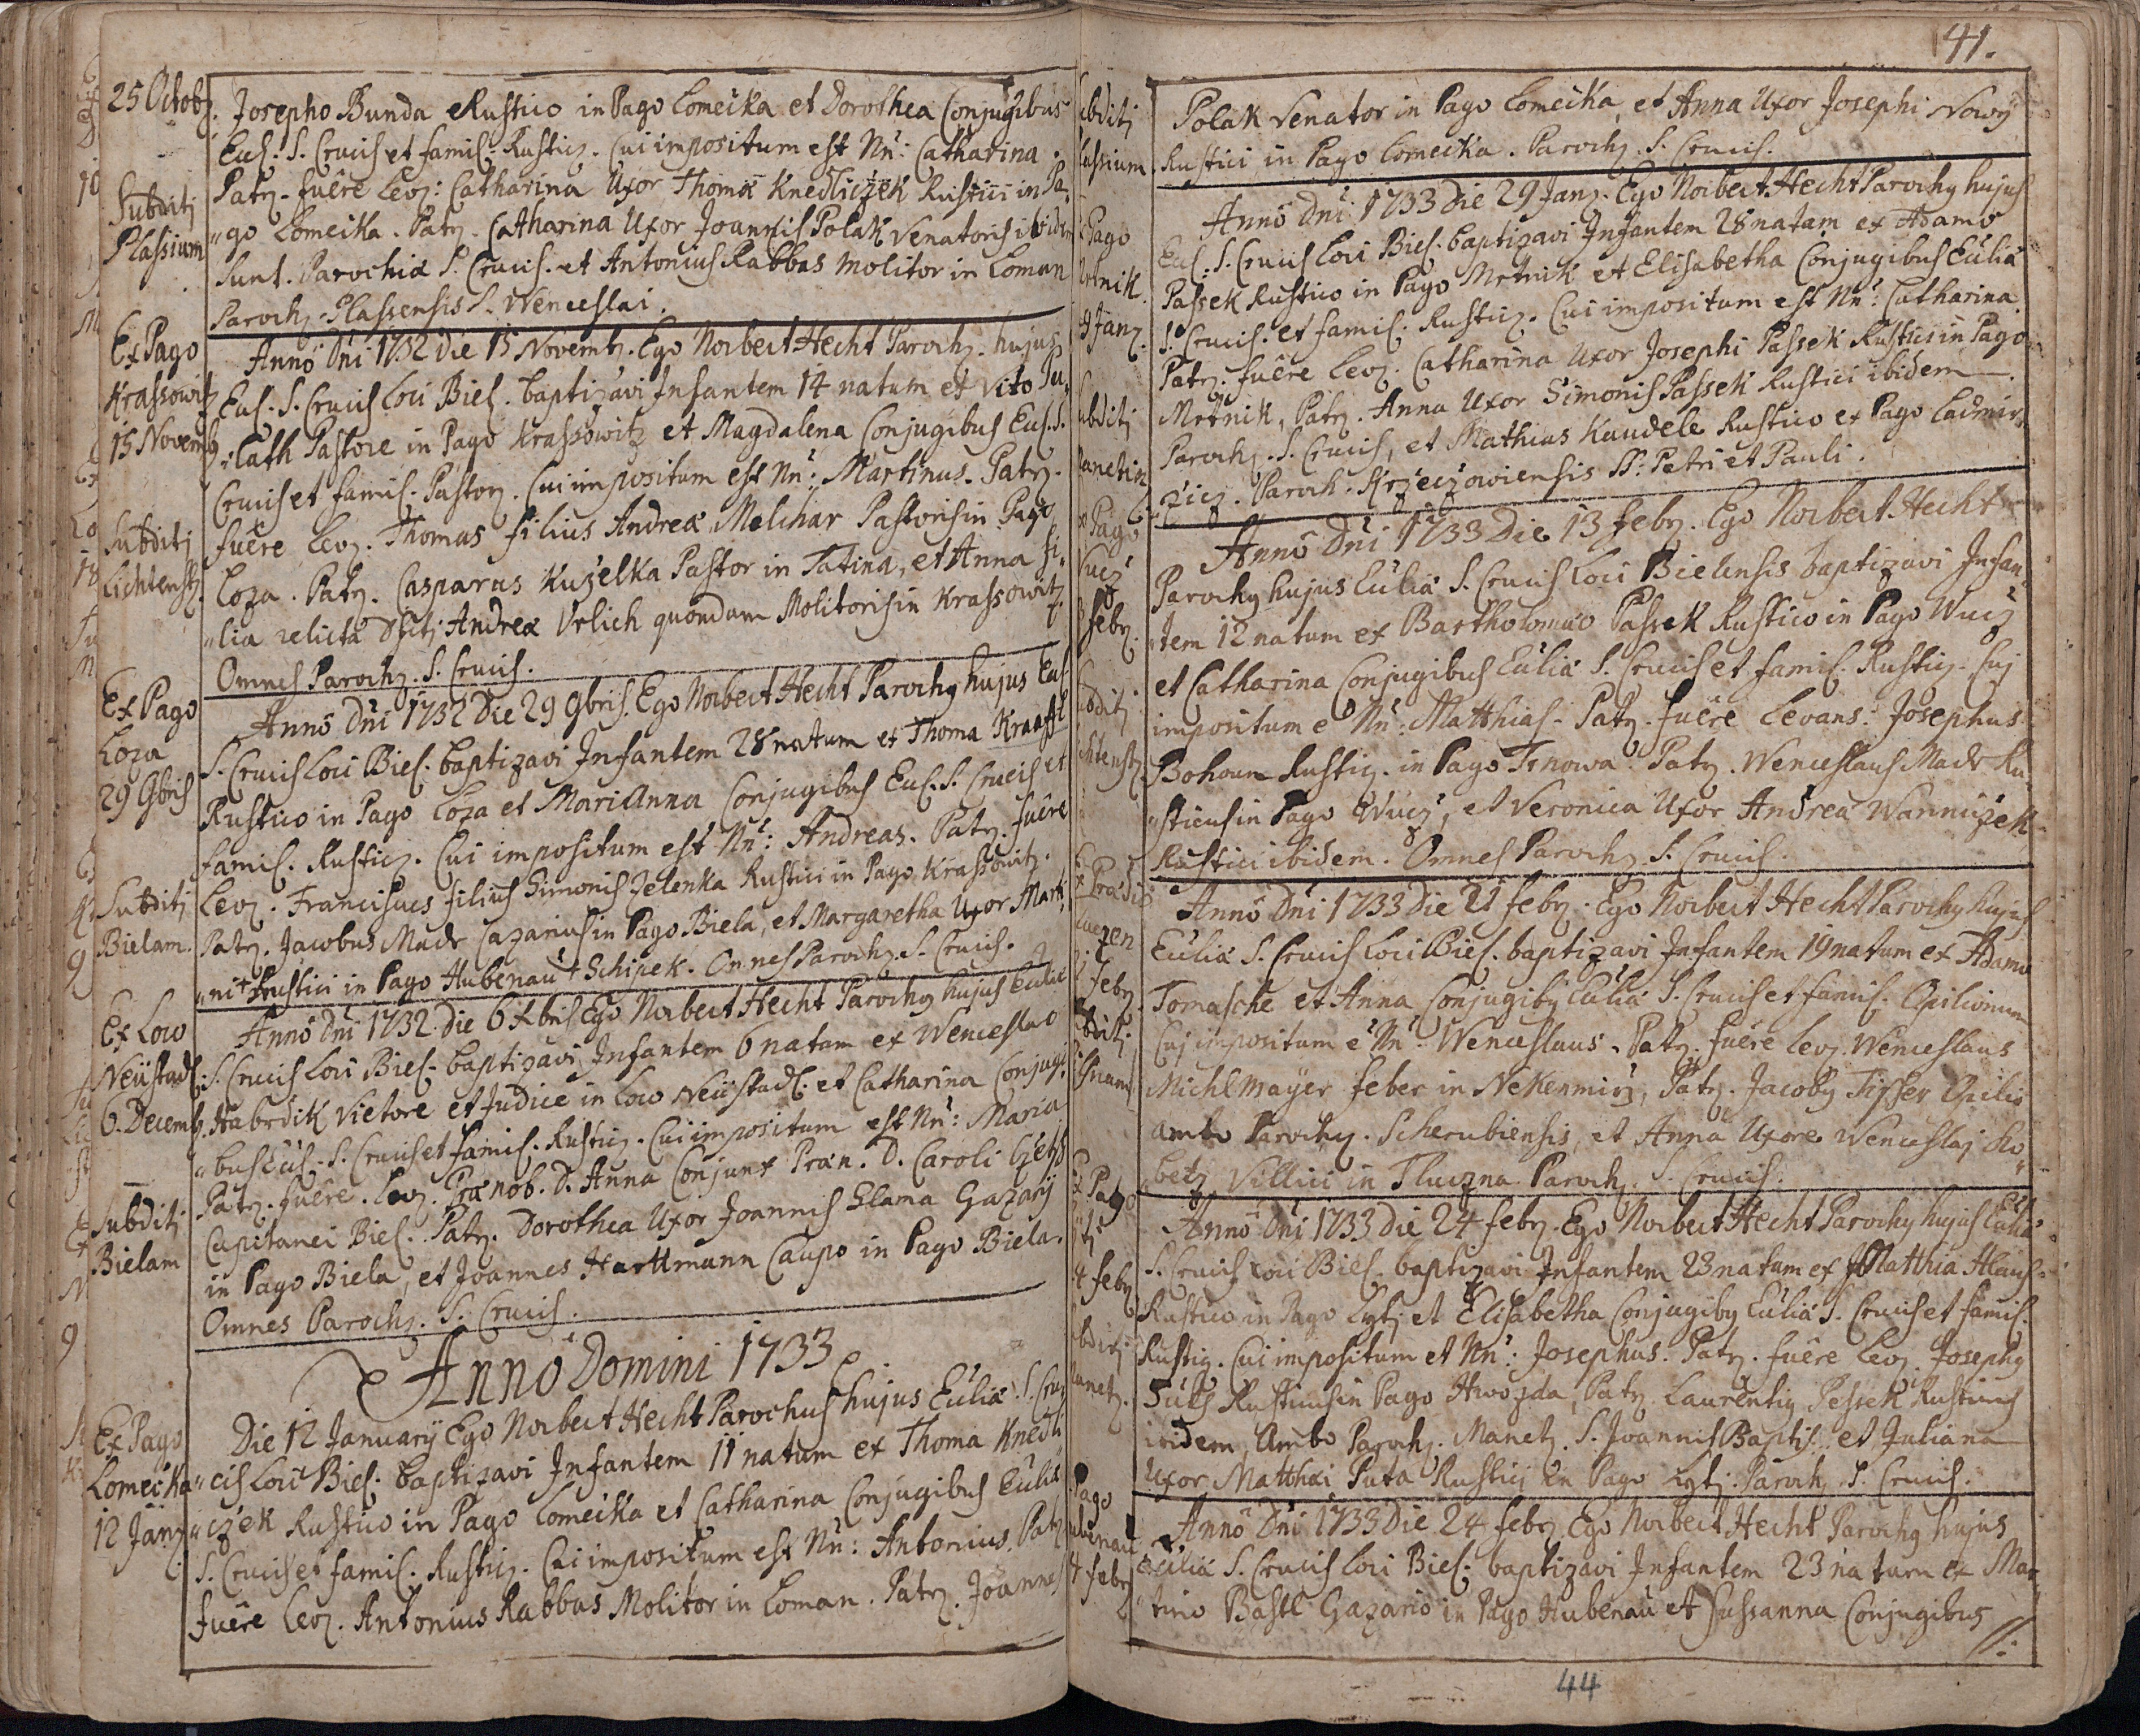 25 Octobr.
Subditj
Plassium
Ex Pago
Krassowitz
15 Novemb
Subditj
Lichtenst.
Ex Pago
Loza
29 9bris
Subditj
Bielam.
Ex Low
Neüstadl.
6. Decemb.
Subditj
Bielam
Ex Pago
Lomecka
12 Janr.
Josepho Bunda Rustico in Pago Lomecka et Dorothea Conjugibus
Eccl: S. Crucis et famil: Rusticr. Cui impositum est Nn: Catharina.
Patr. fuêre Lev: Catharina Uxor Thomæ Knedliczek Rustici in Pa„
„go Lomecka. Patr. Catharina Uxor Joannis Polak Venatoris ibidem
sunt. Parochiæ S. Crucis. et Antonius Rabbas Molitor in Loman
Paroch. Plassensis S. Wenceslai.
Anno Dni 1732 die 15 Novembr. Ego Norbert Hecht Paroch. hujus
Eccl. S. Crucis Loci Biel. baptizavi Infantem 14 natum ex Vito Pu„
„lath Pastore in Pago Krassowitz et Magdalena Conjugibus Eccl. S.
Crucis et famil. Pastor. Cui impositum est Nn: Martinus. Patr.
fuêre Lev. Thomas filius Andreæ Melchar Pastoris in Pago
Loza. Patr. Casparus Kuzelka Pastor in Tatina, et Anna fi„
„lia relicta Dfctj Andreæ Urlich quondam Molitoris in Krassowitz.
Omnes Paroch. S. Crucis.
Anno Dni 1732 Die 29 9bris. Ego Norbert Hecht Parochus hujus Eccl.
S. Crucis Loci Biel. baptizavi Infantem 28 natum ex Thoma Kraffl
Rustico in Pago Loza et Marianna Conjugibus Eccl. S. Crucis et
famil. Rusticr. Cui impositum est Nn: Andreas. Patr. fuêre
Lev. Franciscus filius Simonis Zelenka Rustici in Pago Krassowitz.
Patr. Jacobus Madr Cazarius in Pago Biela, et Margaretha Uxor Marti„
„ni + Rustici in Pago Hubenau + Schipek. Omnes Paroch. S. Crucis.
Anno Dni 1732 Die 6 Xbris Ego Norbert Hecht Parochus hujus Eccliæ
S. Crucis Loci Biel. baptizavi Infantem 6 natam ex Wenceslao
Habrdik Vietore et Judice in Low Neüstadl. et Catharina Conjugi„
„bus Eccl. S. Crucis et famil. Rusticr. Cui impositum est Nn: Maria
Patr. fuêre. Lev. Prænob. D. Anna Conjunx Præn. D. Caroli
Capitanei Biel. Patr. Dorothea Uxor Joannis Slama Gazarÿ
in Pago Biela, et Joannes Harttmann Caupo in Pago Biela.
Omnes Paroch. S. Crucis.
Anno Domini 1733
Die 12 Januarÿ Ego Norbert Hecht Parochus hujus Eccliæ S. Cru„
„cis Loci Biel. baptizavi Infantem 11 natum ex Thoma Knedli„
„czek Rustico in Pago Lomecka et Catharina Conjugibus Eccliæ
S. Crucis et famil. Rusticr. Cui impositum est Nn: Antonius. Patr
fuêre Lev. Antonius Rabbas Molitor in Loman. Patr. Joannes
41.
Polak Venator in Pago Lomecka, et Anna Uxor Josephi Nowÿ
Rustici in Pago Lomecka. Paroch. S. Crucis.
Anno Dni 1733 Die 29 Janr. Ego Norbert Hecht Parochus hujus
Eccl. S. Crucis Loci Biel. baptizavi Infantem 28 natam ex Adamo
Passek Rustico in Pago Mrtnik et Elisabetha Conjugibus Eccliæ
S. Crucis. et famil. Rusticr. Cui impositum est Nn: Catharina.
Patr. fuêre Lev. Catharina Uxor Josephi Passek Rustici in Pago
Mrtnik, Patr. Anna Uxor Simonis Passek Rustici ibidem
Paroch. S. Crucis, et Mathias Kandele Rustico ex Pago Ladmir„
Paroch. Krzeczowiensis SS: Petri et Pauli.
Anno Dni 1733 Die 13 febr. Ego Norbert Hecht
Parochus hujus Eccliæ S. Crucis Loci Bielensis baptizavi Infan„
„tem 12 natum ex Bartholomæo Passek Rustico in Pago Wucz
et Catharina Conjugibus Eccliæ S. Crucis et famil. Rusticr. Cuj
impositum e Nn: Matthias. Patr. fuêre Levans: Josephus
Bohoun Rusticr. in Pago Trnowa. Patr. Wenceslaus Madr Ru„
„sticus in Pago Wucz, et Veronica Uxor Andreæ Wanniczek
Rustici ibidem. Omnes Paroch. S. Crucis.
Anno Dni 1733 Die 21 febr. Ego Norbert Hecht Parochus hujus
Eccliæ S. Crucis Loci Biel. baptizavi Infantem 19 natum ex Adamo
Tomasche et Anna Conjugibus Eccliæ S. Crucis et famil. Opilionum
Cuj impositum e Nn: Wenceslaus. Patr. fuêre Lev. Wenceslaus
Michlmaÿer feber in Nekenmirz, Patr. Jacobus Tisser Opilio
ambo Parochy. Scherubiensis, et Anna Uxore Wenceslaj Ko„
„betz Villici in Tluczna Paroch. S. Crucis.
Anno Dni 1733 Die 24 febr. Ego Norbert Hecht Parochus hujus Eccliæ
S. Crucis Loci Biel. baptizavi Infantem 23 natum ex Matthia Hlaus
Rustico in Pago Lytj et Elisabetha Conjugibus Eccliæ S. Crucis et famil.
Rusticr. Cui impositum et Nn: Josephus. Patr. fuêre Lev. Josephus
Suks Rusticus in Pago Hwozda, Patr. Laurentius Pessek Rusticus
ibidem, Ambo Paroch. Manet. S. Joannis Baptis. et Juliana
Uxor Matthæi Puta Rustici in Pago Lytj. Paroch. S. Crucis.
Anno Dni 1733 Die 24 febr. Ego Norbert Hecht Parochus hujus
Eccliæ S. Crucis Loci Biel. baptizavi Infantem 23 natum ex Mar„
„tino Bastl Gazario in Pago Hubenau et Sussanna Conjugibus
//:
44